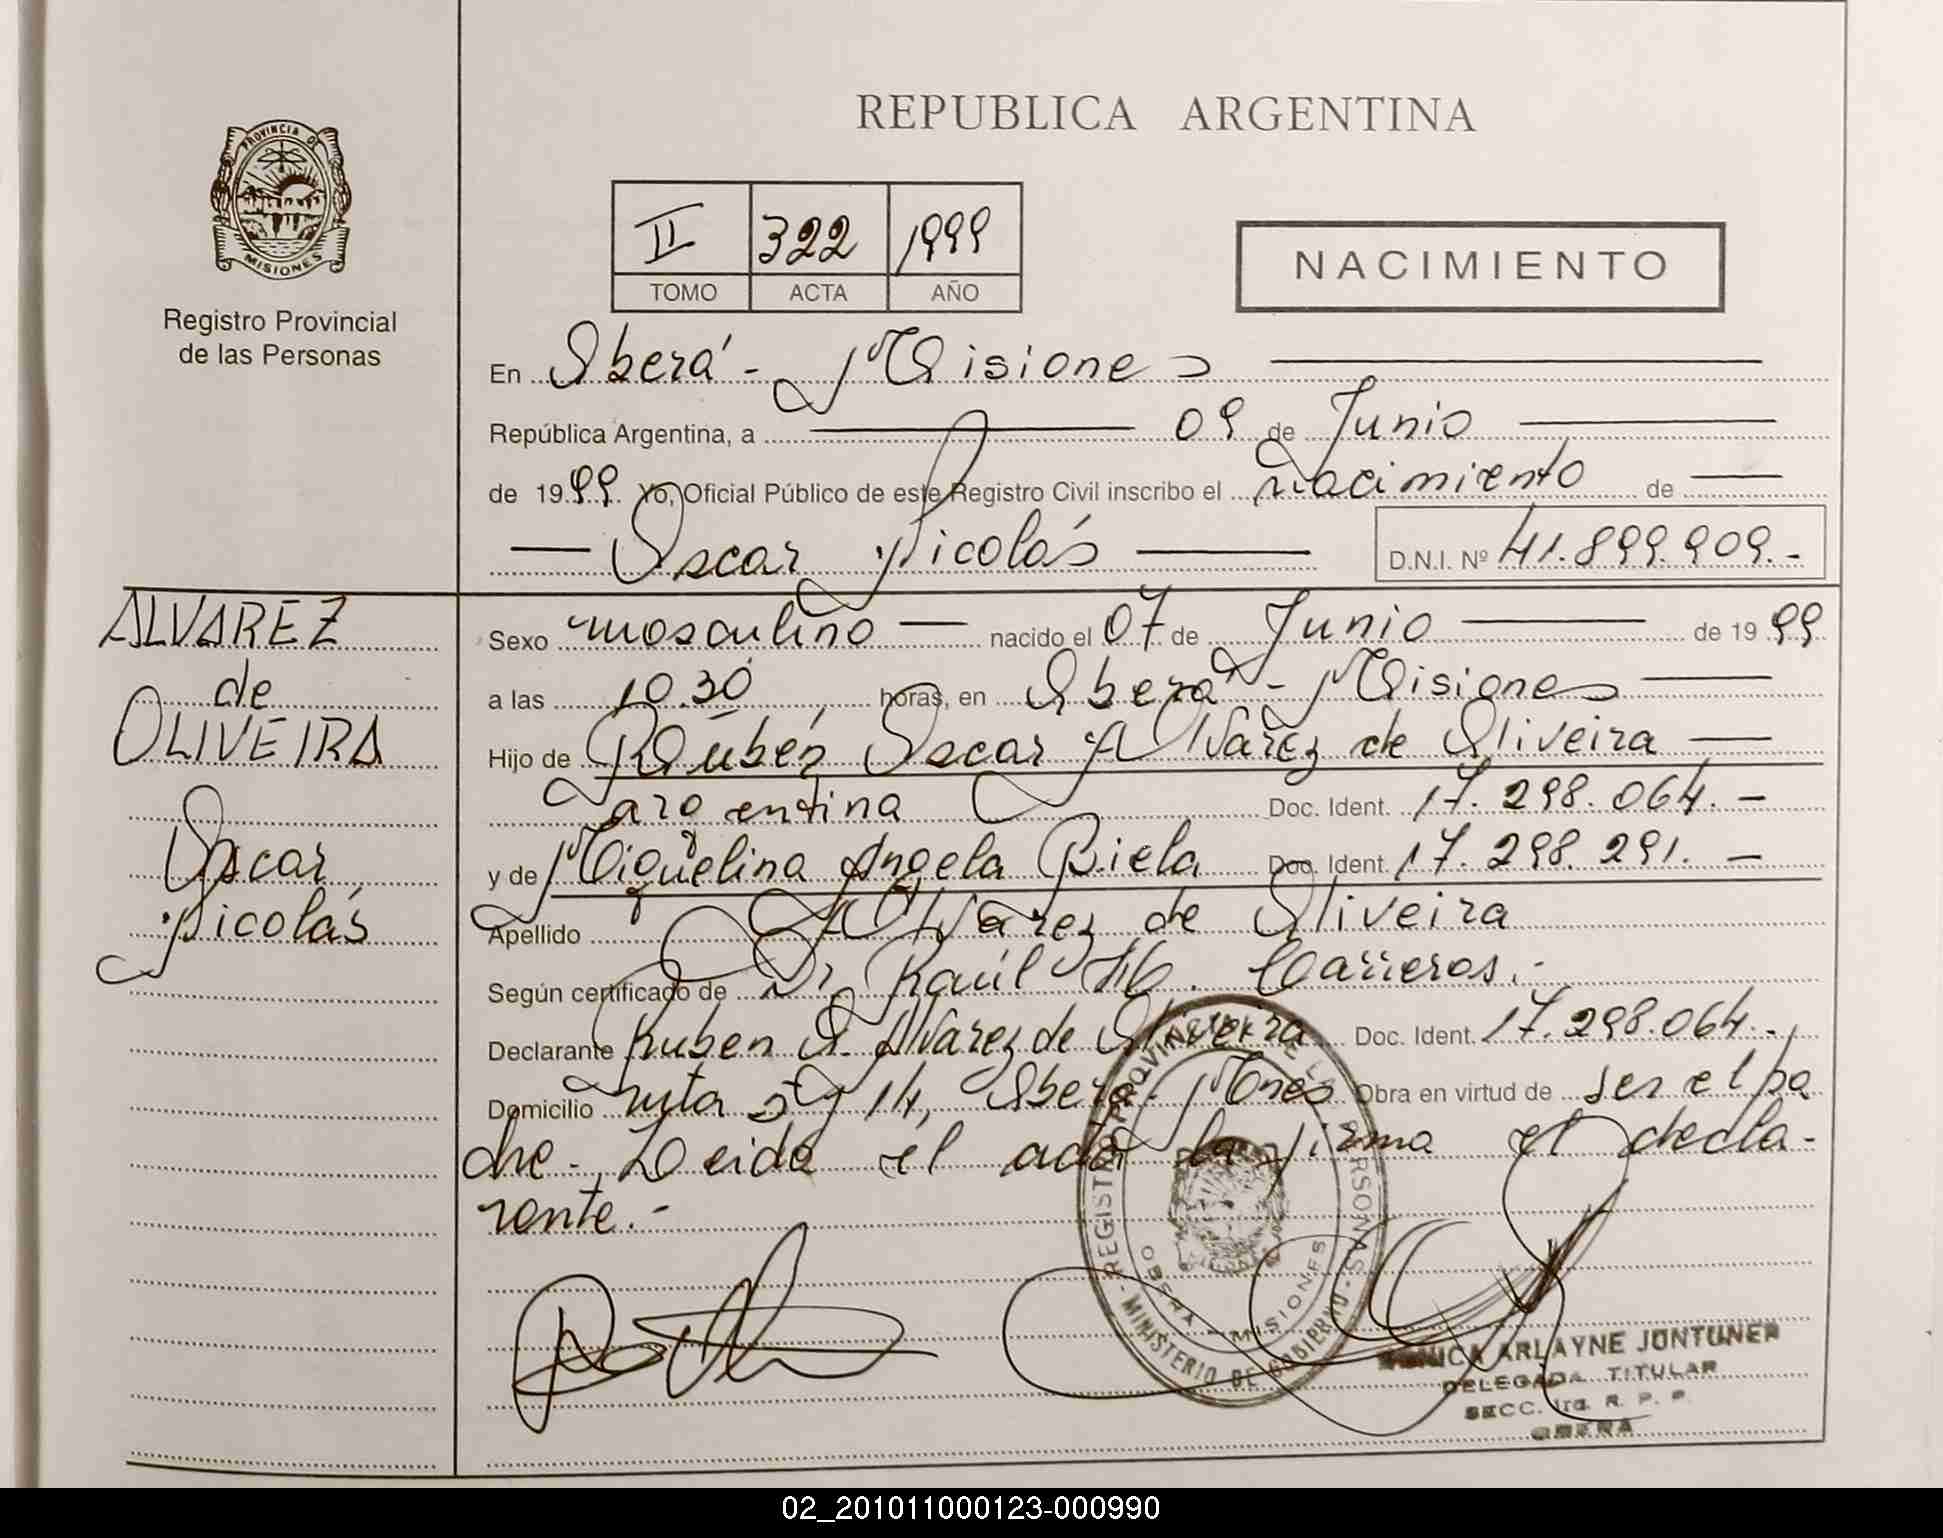 REPUBLICA ARGENTINA
PROVINCIA DE
MISIONES
Registro Provincial
de las Personas
II 322 1999
TOMO ACTA AÑO
NACIMIENTO
En Oberá - Misiones
República Argentina, a 09 de Junio
de 1999 Yo, Oficial Público de este Registro Civil inscribo el nacimiento de
Oscar Nicolás D.N.I. Nº 41.899.909.-
ALVAREZ
de
OLIVEIRA
Oscar
Nicolás
Sexo masculino nacido el 07 de Junio de 1999
a las 10.30 horas, en Oberá - Misiones
Hijo de Rubén Oscar Alvarez de Oliveira
argentina Doc. Ident. 17.298.064.-
y de Miguelina Angela Biela Doc. Ident. 17.298.291.-
Apellido Alvarez de Oliveira
Según certificado de Dr. Raúl Carreros.-
Declarante Ruben O. Alvarez de Oliveira Doc. Ident. 17.298.064.-
Domicilio ruta 5 y 14, Oberá - Mnes Obra en virtud de ser el pa
dre-, Leida el acta la firma el decla-
rante.-
OBERA - MISIONES
MINISTERIO DE GOBIERNO
MONICA ARLAYNE JONTUNER
DELEGADA TITULAR
SECC. 1ra. R. P. P.
OBERA
02_201011000123-000990